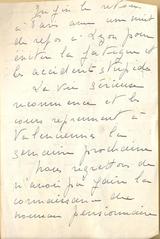 Enfin le retour
à Paris avec une nuit
de repos à Lyon pour
éviter la fatigue et
les accidents stupides
La vie sérieuse
recommence et les
cours reprennent à
Valenciennes la
semaine prochaine
Nous regrettons de
n'avoir pu faire la
connaissance du
nouveau pensionnaire